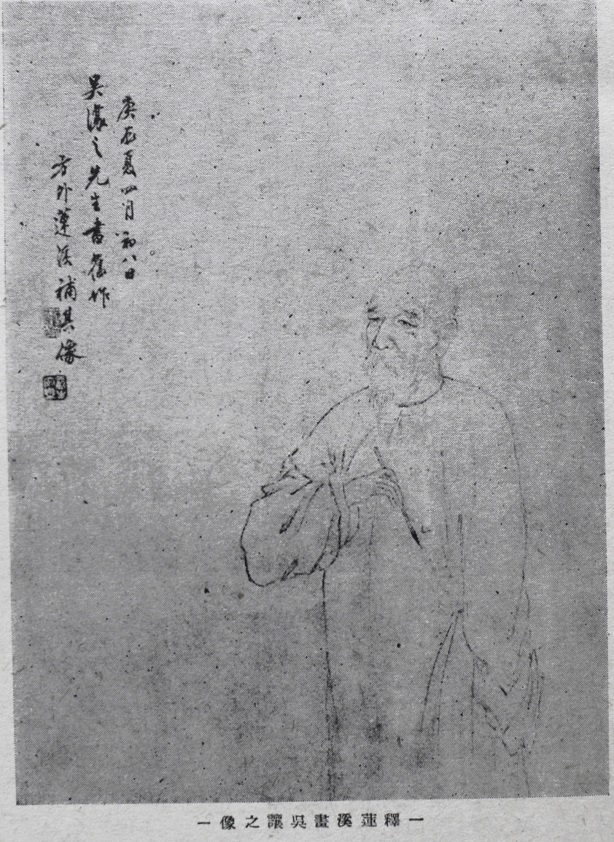 庚辰夏四月初八日
吳讓之先生書舊作
方外蓮溪補其像
—釋蓮溪畫吳讓之像—